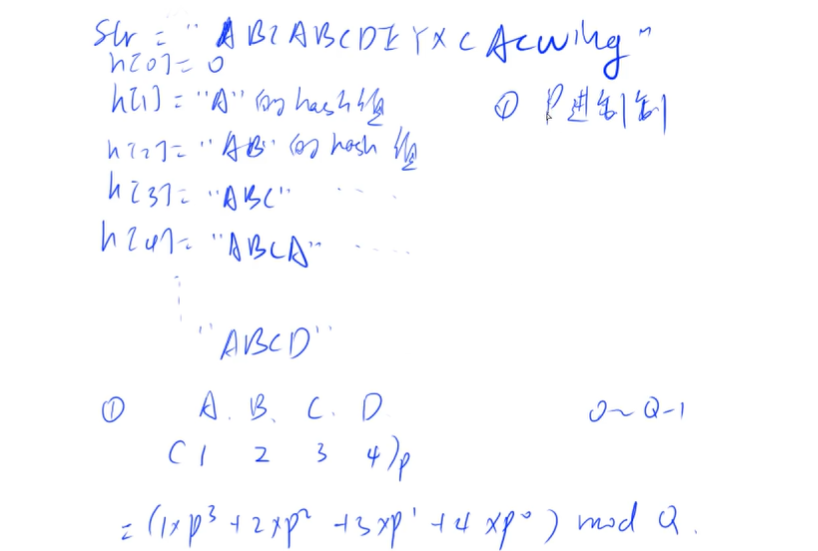 Str = "ABCABCDEYXCAcwing"
h[0] = 0
h[1] = "A" 的hash值
① P进制制
h[2] = "AB" 的hash值
h[3] = "ABC" ....
h[4] = "ABCA" ....
"ABCD"
① A. B. C. D
0~Q-1
(1 2 3 4)p
= (1×p³ + 2×p² + 3×p¹ + 4×p⁰) mod Q.